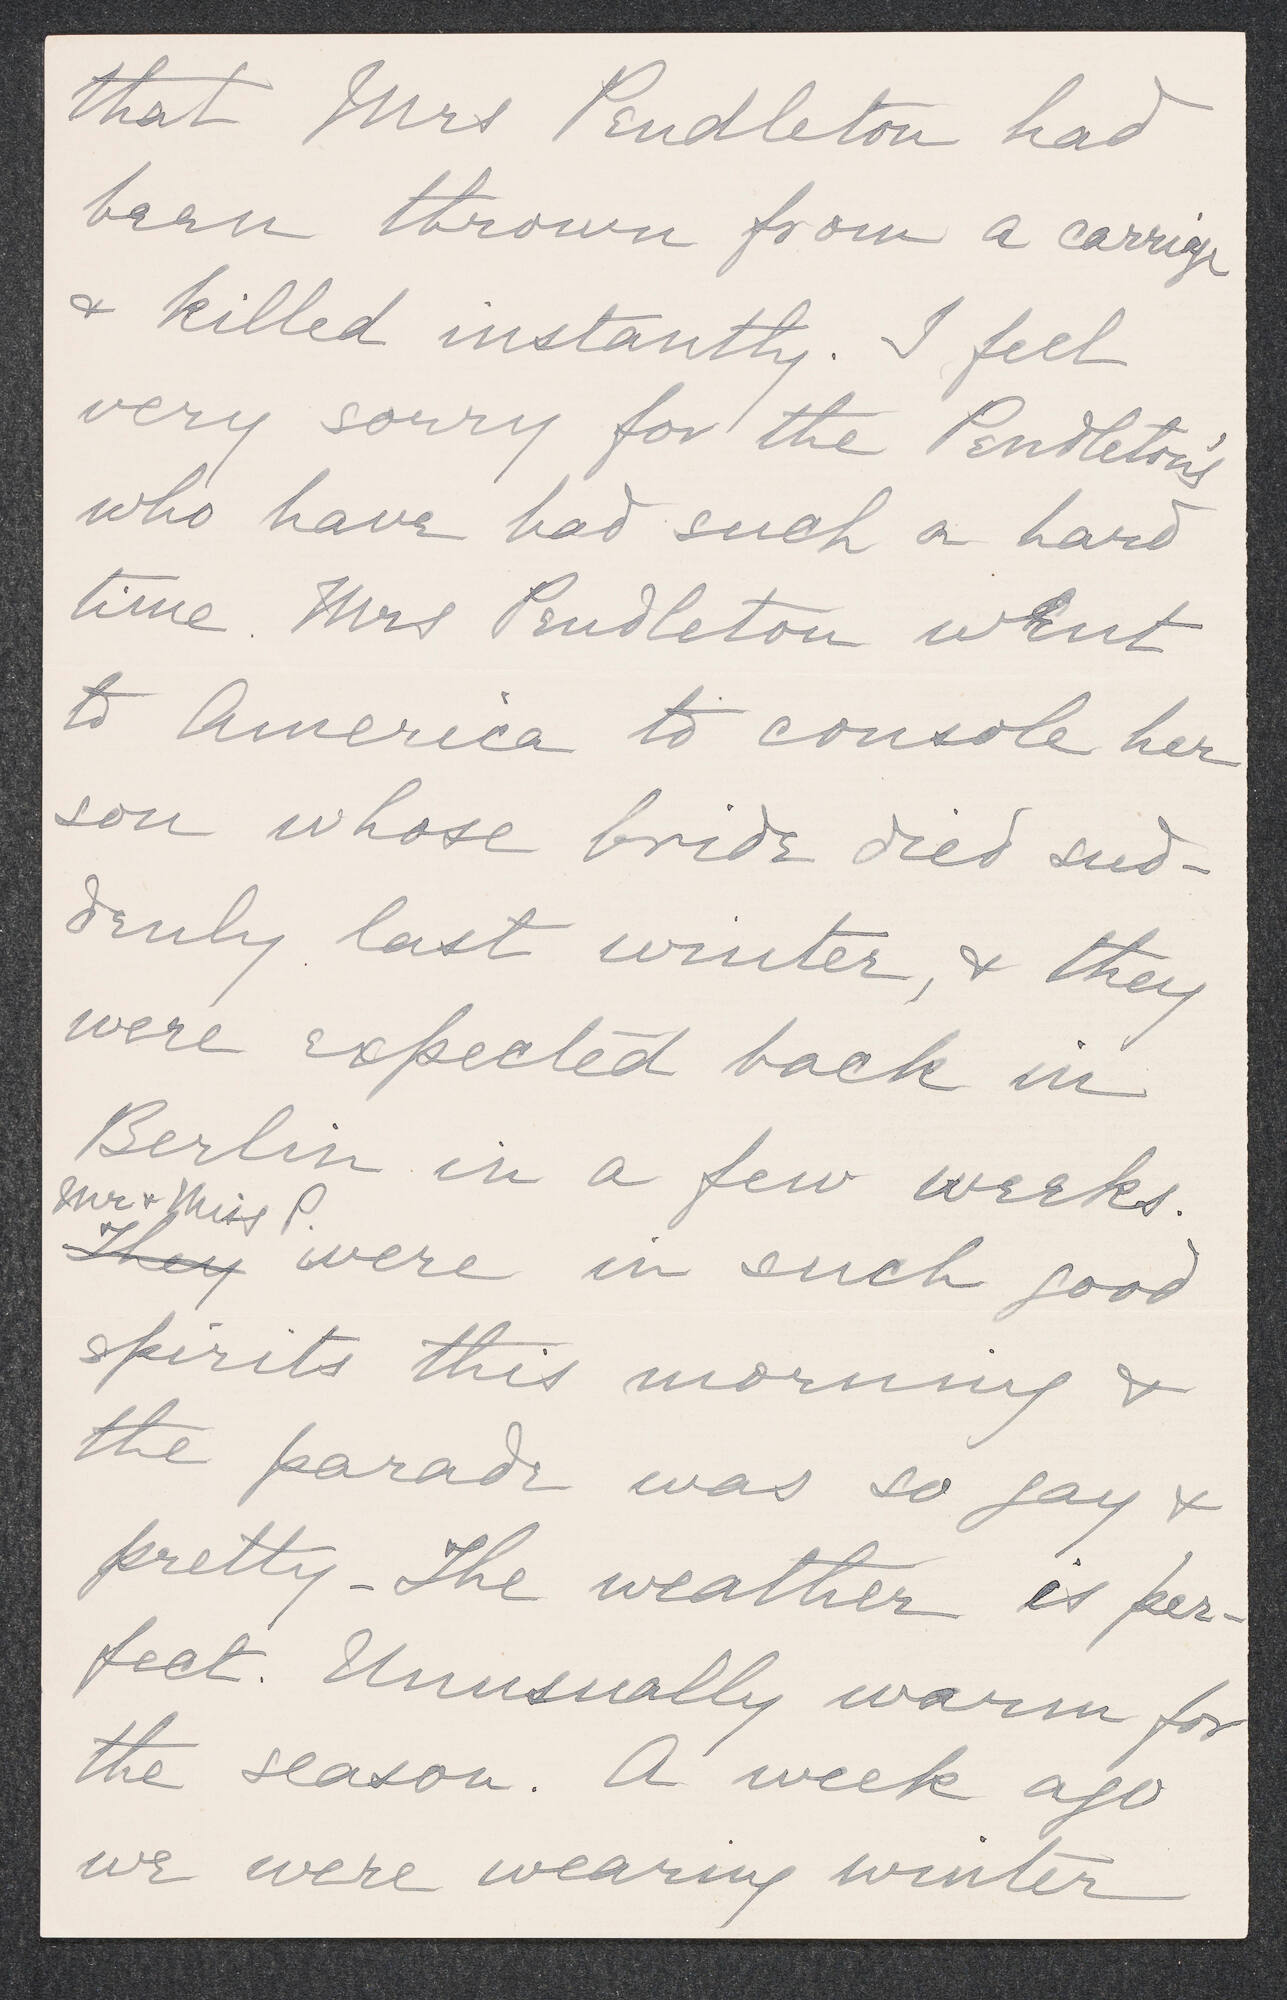 that Mrs Pendleton had
been thrown from a carriage
& killed instantly. I feel
very sorry for the Pendleton's
who have had such a hard
time. Mrs Pendleton went
to America to console her
son whose bride died sud-
denly last winter, & they
were expected back in
Berlin in a few weeks.
Mr & Miss P.
They were in such good
spirits this morning &
the parade was so gay &
pretty - The weather is per-
fect. Unusually warm for
the season. A week ago
we were wearing winter